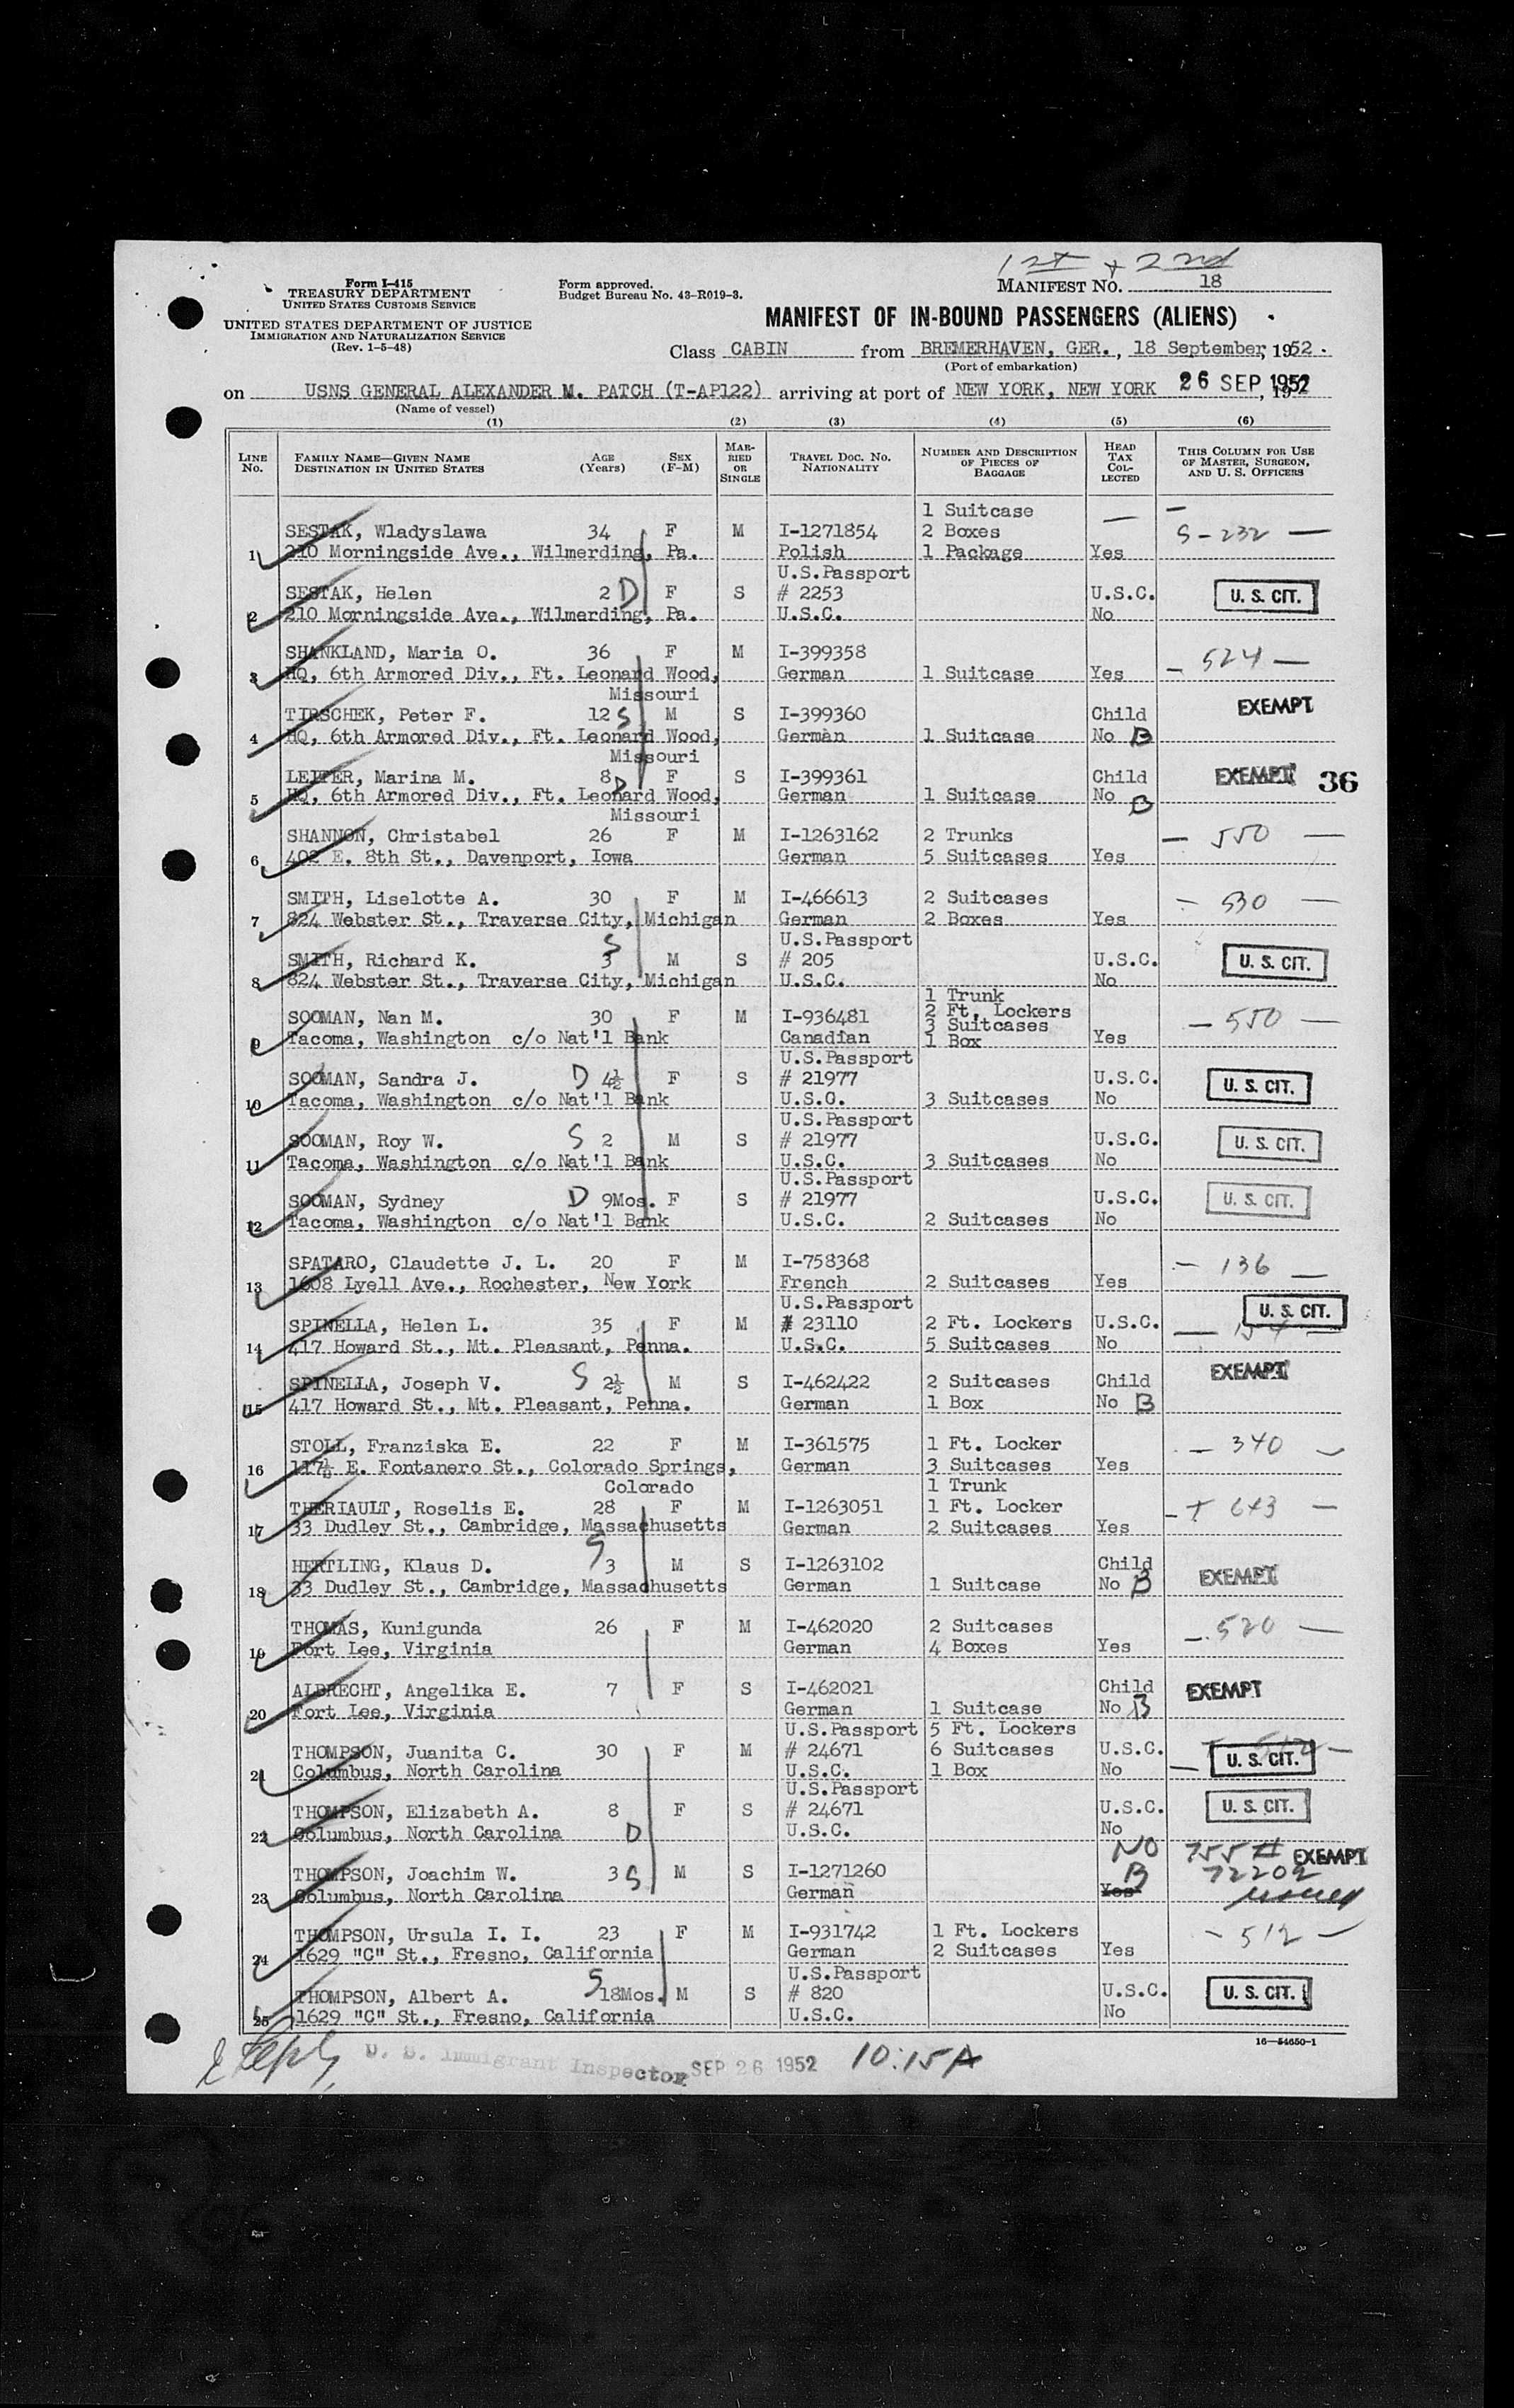 1st + 2nd
Form I-415
TREASURY DEPARTMENT
UNITED STATES CUSTOMS SERVICE
UNITED STATES DEPARTMENT OF JUSTICE
IMMIGRATION AND NATURALIZATION SERVICE
(Rev. 1-5-48)
Form approved.
Budget Bureau No. 43-R019-3.
MANIFEST NO. 18
MANIFEST OF IN-BOUND PASSENGERS (ALIENS)
Class CABIN from BREMERHAVEN, GER., 18 September, 1952.
(Port of embarkation)
on USNS GENERAL ALEXANDER M. PATCH (T-AP122) arriving at port of NEW YORK, NEW YORK 26 SEP 1952, 195
(Name of vessel)
(1) (2) (3) (4) (5) (6)
LINE NO. FAMILY NAME—GIVEN NAME DESTINATION IN UNITED STATES AGE (Years) SEX (F-M) MARRIED OR SINGLE TRAVEL DOC. NO. NATIONALITY NUMBER AND DESCRIPTION OF PIECES OF BAGGAGE HEAD TAX COLLECTED THIS COLUMN FOR USE OF MASTER, SURGEON, AND U. S. OFFICERS
1 Suitcase
SESTAK, Wladyslawa 34 F M I-1271854 2 Boxes — S-232 —
1 210 Morningside Ave., Wilmerding, Pa. Polish 1 Package Yes
U.S.Passport
SESTAK, Helen 2 D F S # 2253 U.S.C. U. S. CIT.
2 210 Morningside Ave., Wilmerding, Pa. U.S.C. No
SHANKLAND, Maria O. 36 F M I-399358 — 524 —
3 HQ, 6th Armored Div., Ft. Leonard Wood, German 1 Suitcase Yes
Missouri
TIRSCHEK, Peter F. 12 S M S I-399360 Child EXEMPT
4 HQ, 6th Armored Div., Ft. Leonard Wood, German 1 Suitcase No B
Missouri
LEITER, Marina M. 8 D F S I-399361 Child EXEMPT 36
5 HQ, 6th Armored Div., Ft. Leonard Wood, German 1 Suitcase No B
Missouri
SHANNON, Christabel 26 F M I-1263162 2 Trunks — 550 —
6 402 E. 8th St., Davenport, Iowa German 5 Suitcases Yes
SMITH, Liselotte A. 30 F M I-466613 2 Suitcases — 530 —
7 824 Webster St., Traverse City, Michigan German 2 Boxes Yes
U.S.Passport
SMITH, Richard K. S 3 M S # 205 U.S.C. U. S. CIT.
8 824 Webster St., Traverse City, Michigan U.S.C. No
1 Trunk
2 Ft. Lockers
SOOMAN, Nan M. 30 F M I-936481 3 Suitcases — 550 —
9 Tacoma, Washington c/o Nat'l Bank Canadian 1 Box Yes
U.S.Passport
SOOMAN, Sandra J. D 4½ F S # 21977 U.S.C. U. S. CIT.
10 Tacoma, Washington c/o Nat'l Bank U.S.C. 3 Suitcases No
U.S.Passport
SOOMAN, Roy W. S 2 M S # 21977 U.S.C. U. S. CIT.
11 Tacoma, Washington c/o Nat'l Bank U.S.C. 3 Suitcases No
U.S.Passport
SOOMAN, Sydney D 9Mos. F S # 21977 U.S.C. U. S. CIT.
12 Tacoma, Washington c/o Nat'l Bank U.S.C. 2 Suitcases No
SPATARO, Claudette J. L. 20 F M I-758368 — 136 —
13 1608 Lyell Ave., Rochester, New York French 2 Suitcases Yes
U.S.Passport U. S. CIT.
SPINELLA, Helen L. 35 F M # 23110 2 Ft. Lockers U.S.C.
14 417 Howard St., Mt. Pleasant, Penna. U.S.C. 5 Suitcases No
SPINELLA, Joseph V. S 2½ M S I-462422 2 Suitcases Child EXEMPT
15 417 Howard St., Mt. Pleasant, Penna. German 1 Box No B
STOLL, Franziska E. 22 F M I-361575 1 Ft. Locker — 340 —
16 E. Fontanero St., Colorado Springs, German 3 Suitcases Yes
Colorado 1 Trunk
THERIAULT, Roselis E. 28 F M I-1263051 1 Ft. Locker — T 643 —
17 33 Dudley St., Cambridge, Massachusetts German 2 Suitcases Yes
HERTLING, Klaus D. S 3 M S I-1263102 Child EXEMPT
18 33 Dudley St., Cambridge, Massachusetts German 1 Suitcase No B
THOMAS, Kunigunda 26 F M I-462020 2 Suitcases — 520 —
19 Fort Lee, Virginia German 4 Boxes Yes
ALBRECHT, Angelika E. 7 F S I-462021 Child EXEMPT
20 Fort Lee, Virginia German 1 Suitcase No B
U.S.Passport 5 Ft. Lockers
THOMPSON, Juanita C. 30 F M # 24671 6 Suitcases U.S.C. U. S. CIT.
21 Columbus, North Carolina U.S.C. 1 Box No
U.S.Passport
THOMPSON, Elizabeth A. 8 F S # 24671 U.S.C. U. S. CIT.
22 Columbus, North Carolina D U.S.C. No
NO 755 # EXEMPT
THOMPSON, Joachim W. 3 S M S I-1271260 B 72202
23 Columbus, North Carolina German Yes issued
THOMPSON, Ursula I. I. 23 F M I-931742 1 Ft. Lockers — 512 —
24 1629 "C" St., Fresno, California German 2 Suitcases Yes
U.S.Passport
THOMPSON, Albert A. S 18Mos. M S # 820 U.S.C. U. S. CIT.
25 1629 "C" St., Fresno, California U.S.C. No
16—54650-1
U. S. Immigrant Inspector SEP 26 1952 10:15A